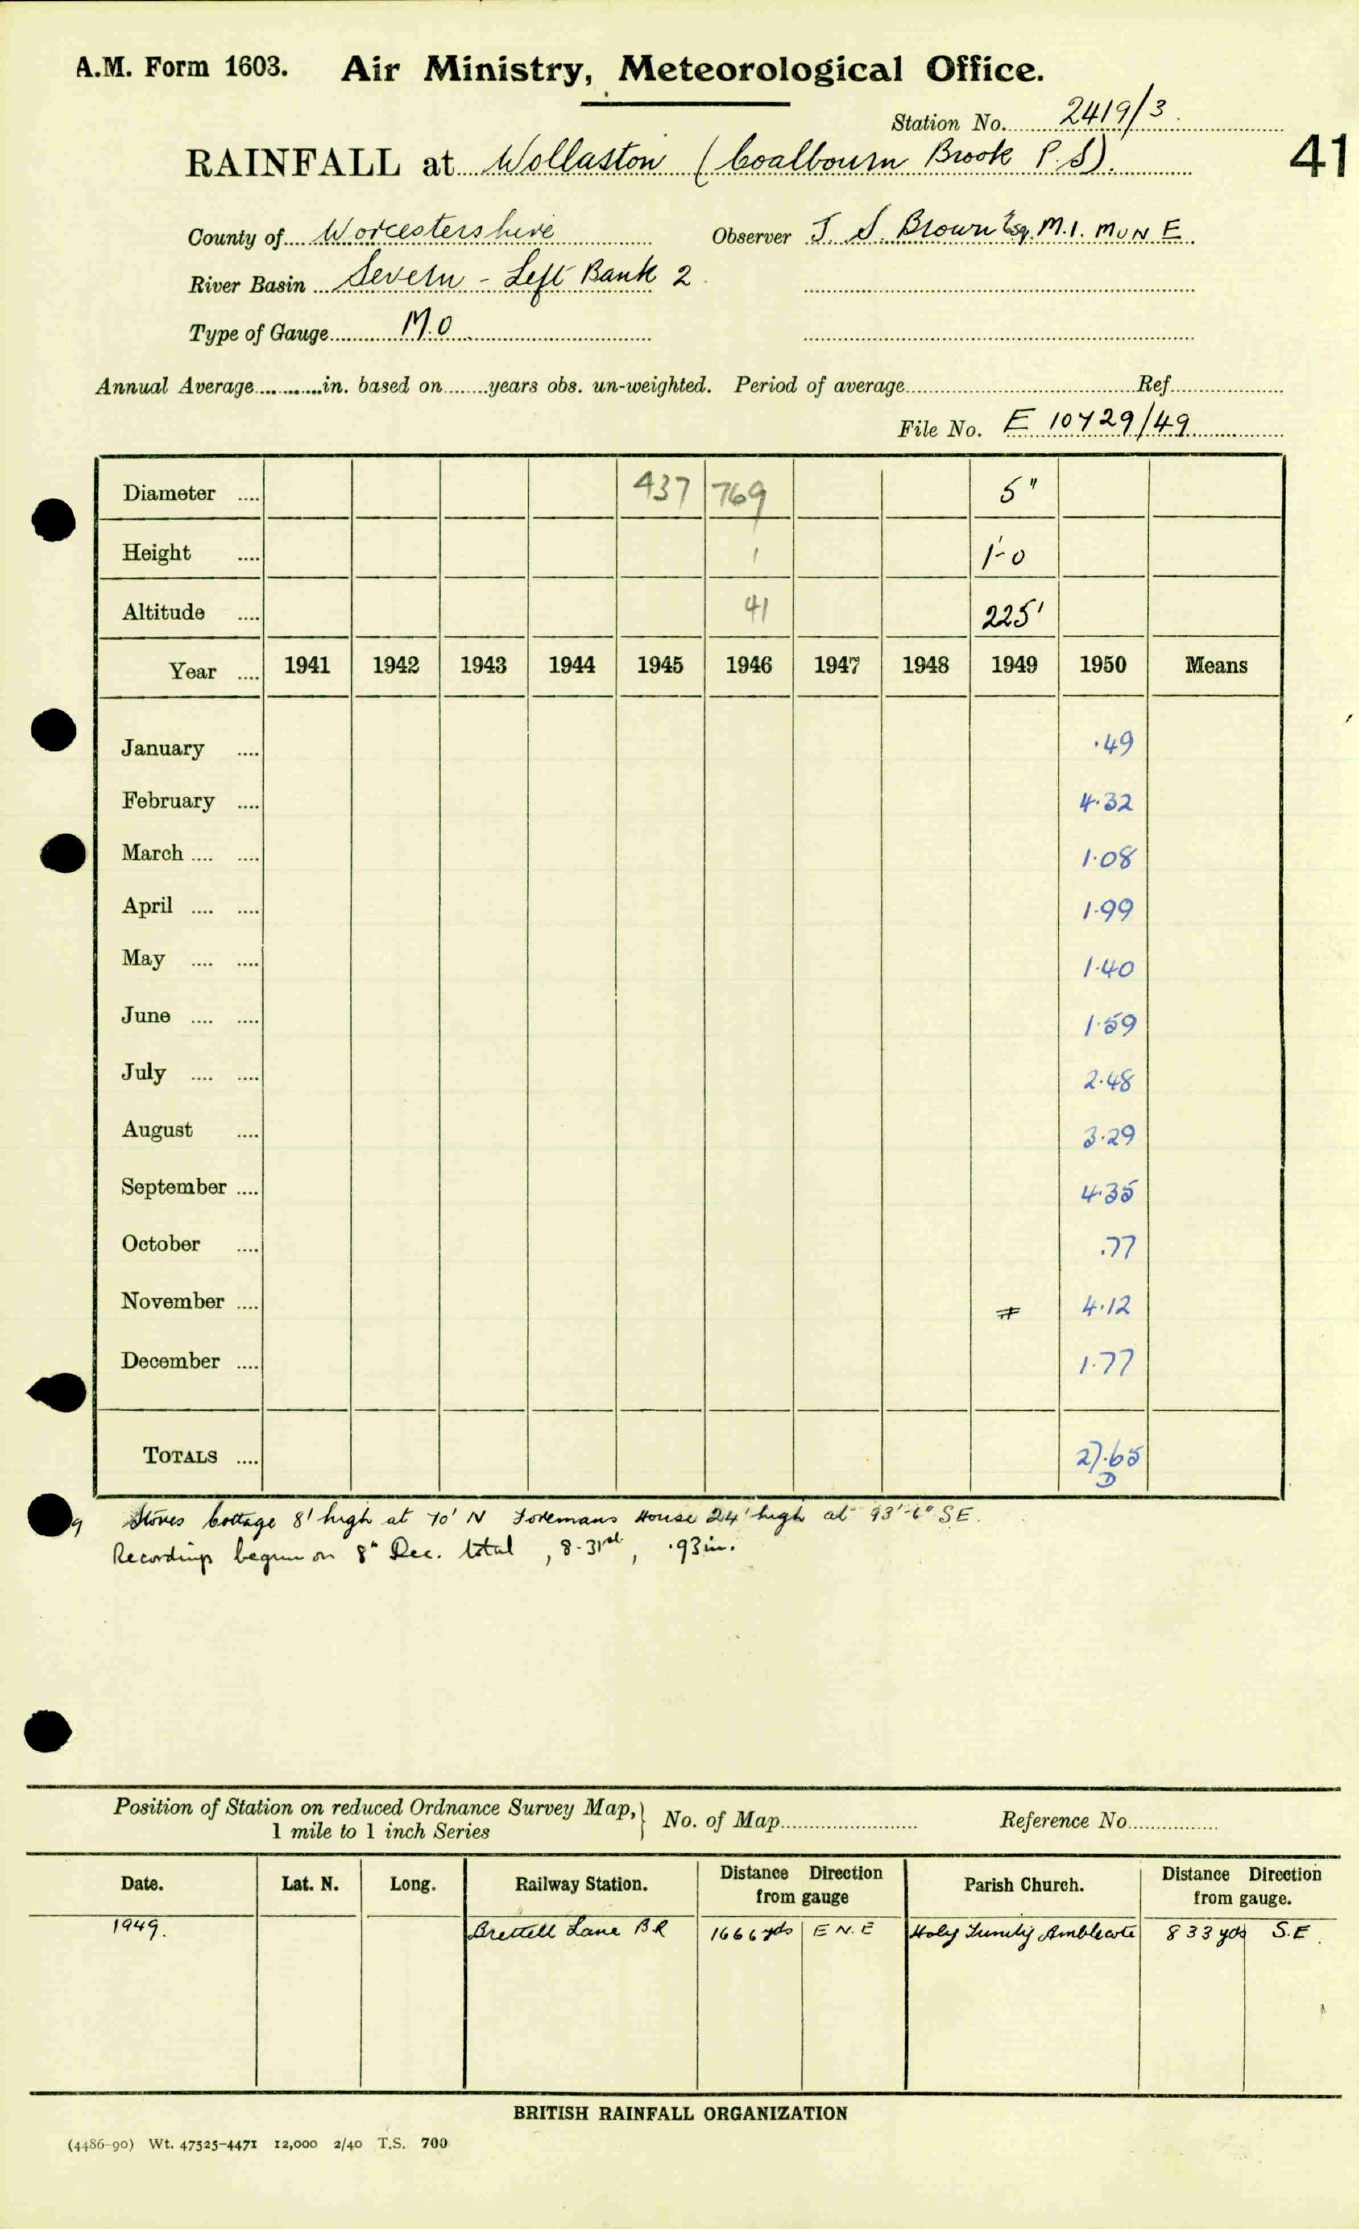 A.M. Form 1603. Air Ministry, Meteorological Office.
Station No. 2419/3
41
RAINFALL at Wollaston (Coalbourn Brook P.S).
County of Worcestershire Observer J. S. Brown Esq. M.I. MUN E.
River Basin Severn - Left Bank 2
Type of Gauge M.O
Annual Average in. based on years obs. un-weighted. Period of average Ref.
File No. E 10429/49
Diameter .... 437 769 5"
Height .... 1 1'-0
Altitude .... 41 225'
Year .... 1941 1942 1943 1944 1945 1946 1947 1948 1949 1950 Means
January .... .49
February .... 4.32
March .... .... 1.08
April .... .... 1.99
May .... .... 1.40
June .... .... 1.59
July .... .... 2.48
August .... 3.29
September .... 4.35
October .... .77
November .... ≠ 4.12
December .... 1.77
TOTALS .... 27.65
D
9 Stores Cottage 8' high at 70' N Foremans House 24' high at 93'-6" SE.
Recordings begun on 8th Dec. total, 8-31st, .93in.
Position of Station on reduced Ordnance Survey Map, } No. of Map Reference No.
1 mile to 1 inch Series
Date. Lat. N. Long. Railway Station. Distance Direction from gauge Parish Church. Distance Direction from gauge.
1949. Brettell Lane BR 1666 yds E N.E Holy Trinity Amblecote 833 yds S.E.
BRITISH RAINFALL ORGANIZATION
(4486-90) Wt. 47525-4471 12,000 2/40 T.S. 700